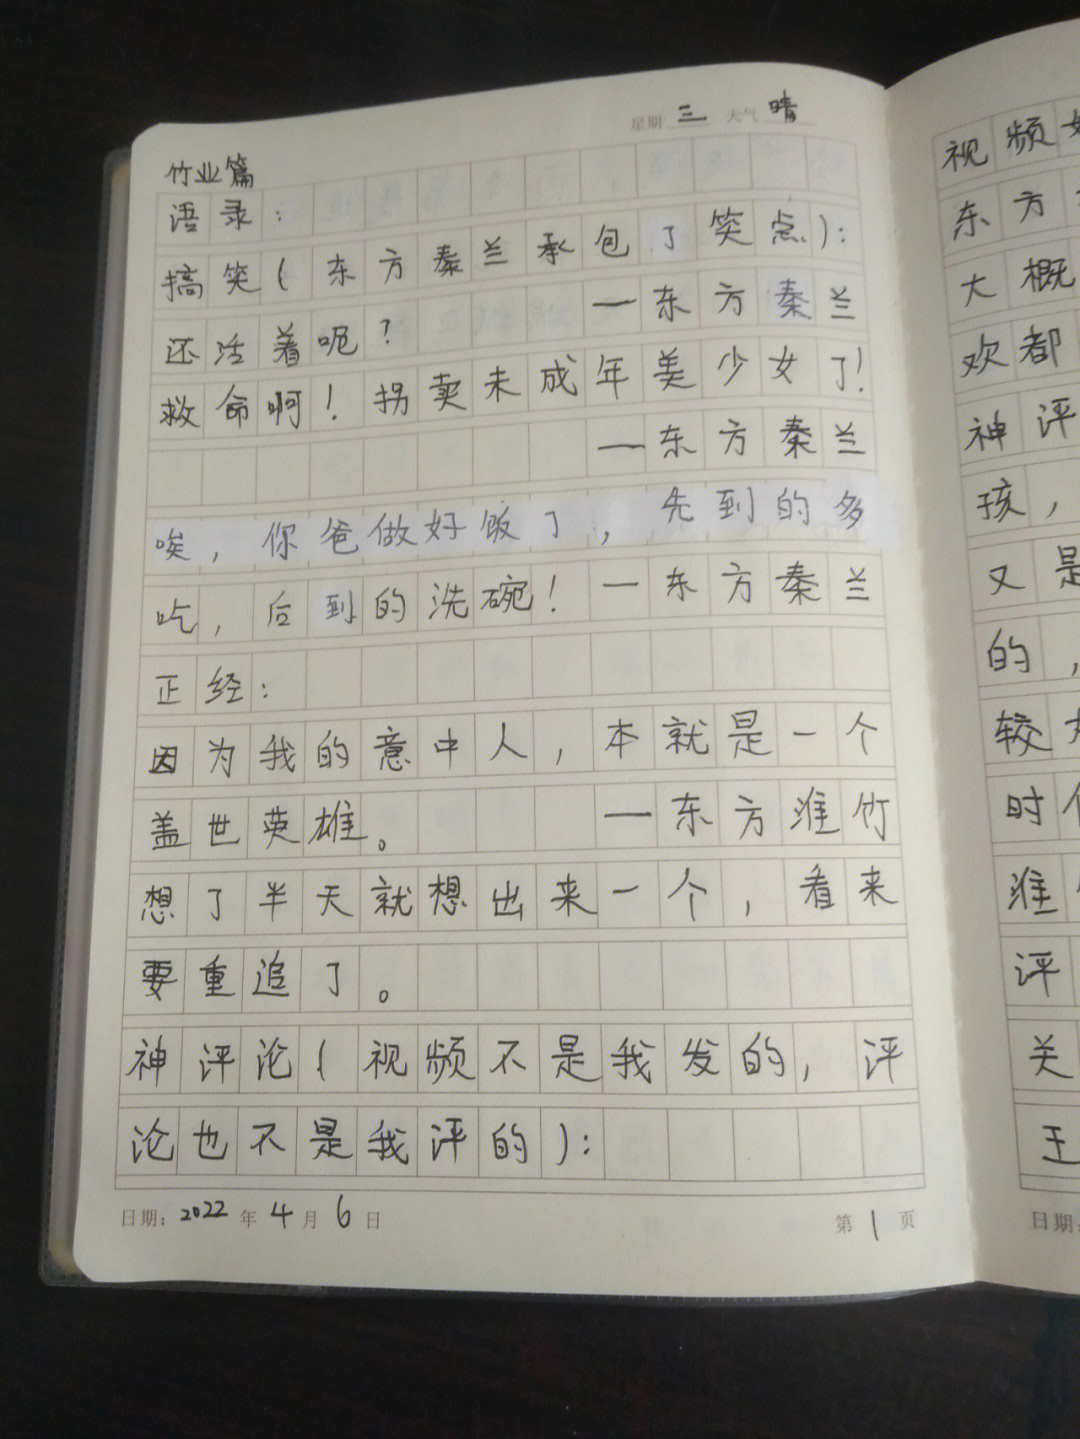 星期 三 天气 晴
竹业篇
语录：
搞笑(东方秦兰承包了笑点)：
还活着呢？ —东方秦兰
救命啊！拐卖未成年美少女了！
—东方秦兰
唉，你爸做好饭了，先到的多
吃，后到的洗碗！—东方秦兰
正经：
因为我的意中人，本就是一个
盖世英雄。 —东方淮竹
想了半天就想出来一个，看来
要重追了。
神评论(视频不是我发的，评
论也不是我评的)：
日期：2022 年 4 月 6 日
第 1 页
视频
东方
大概
欢都
神评
孩，
又是
的，
较
时
淮
评
关
王
日期：